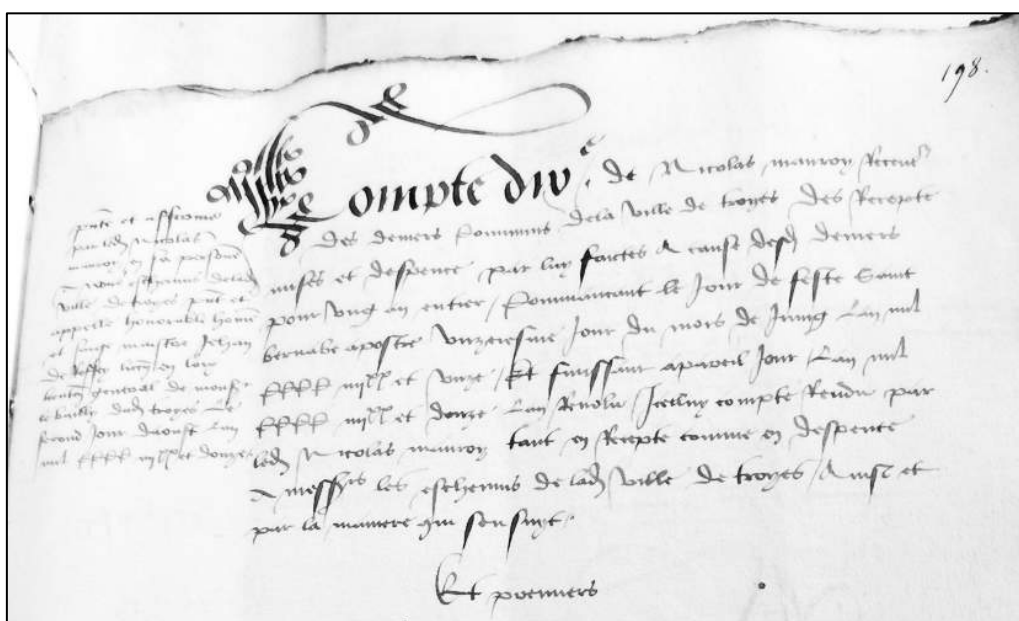 198.
Compte dix^e. de Nicolas mauroy Receveur
des deniers Communs dela ville de troyes des Recepte
mises et despence par luy faictes A cause desd deniers
pour ung an entier / Commancant le Jour de feste saint
bernabe apostre unziesme Jour du mois de Juing Lan mil
CCCC iiij^xx et unze / Et finissant apareil Jour Lan mil
CCCC iiij^xx et douze Lan Revolu Icelluy compte Rendu par
led Nicolas mauroy tant en Recepte comme en despence
A mess^rs les eschevins de lad ville de troyes Ainsi et
par la maniere qui sensuyt.
Et premiers
pnte et afferme
par led Nicolas
mauroy en sa personne
A nous eschevins delad
ville de troyes pnt et
appelle honorable homme
et saige maistre Jehan
de licen en loix
lieuten general de mons^r
le bailly dud troyes Le
second Jour daoust Lan
mil CCCC iiij^xx et douze